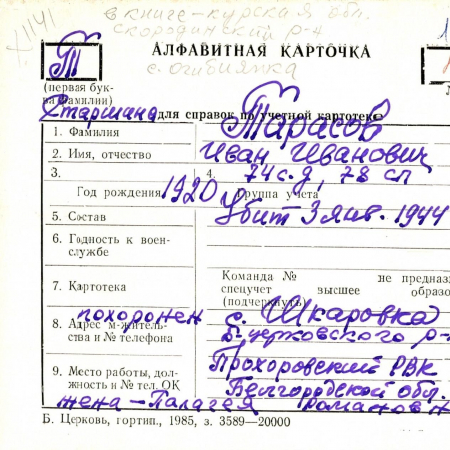 в книге - курская обл.
скороднянский р-н
1141
АЛФАВИТНАЯ КАРТОЧКА
с. огибиянка
Т
(первая бук-
ва фамилии)
Старшина для справок по учетной картотеке
1. Фамилия Тарасов
2. Имя, отчество Иван Иванович
3. 4. 74 с.д, 78 сп
Год рождения 1920 Группа учета
5. Состав Убит 3 янв. 1944
6. Годность к воен-
службе
Команда № не предназ
7. Картотека спецучет высшее образо
(подчеркнуть)
похоронен с. Шкаровка
8. Адрес м-житель-
ства и № телефона Б.церковского р-
9. Место работы, дол-
жность и № тел. ОК Прохоровский РВК
Белгородской обл.
жена - Палагея Романовн
Б. Церковь, гортип., 1985, з. 3589—20000